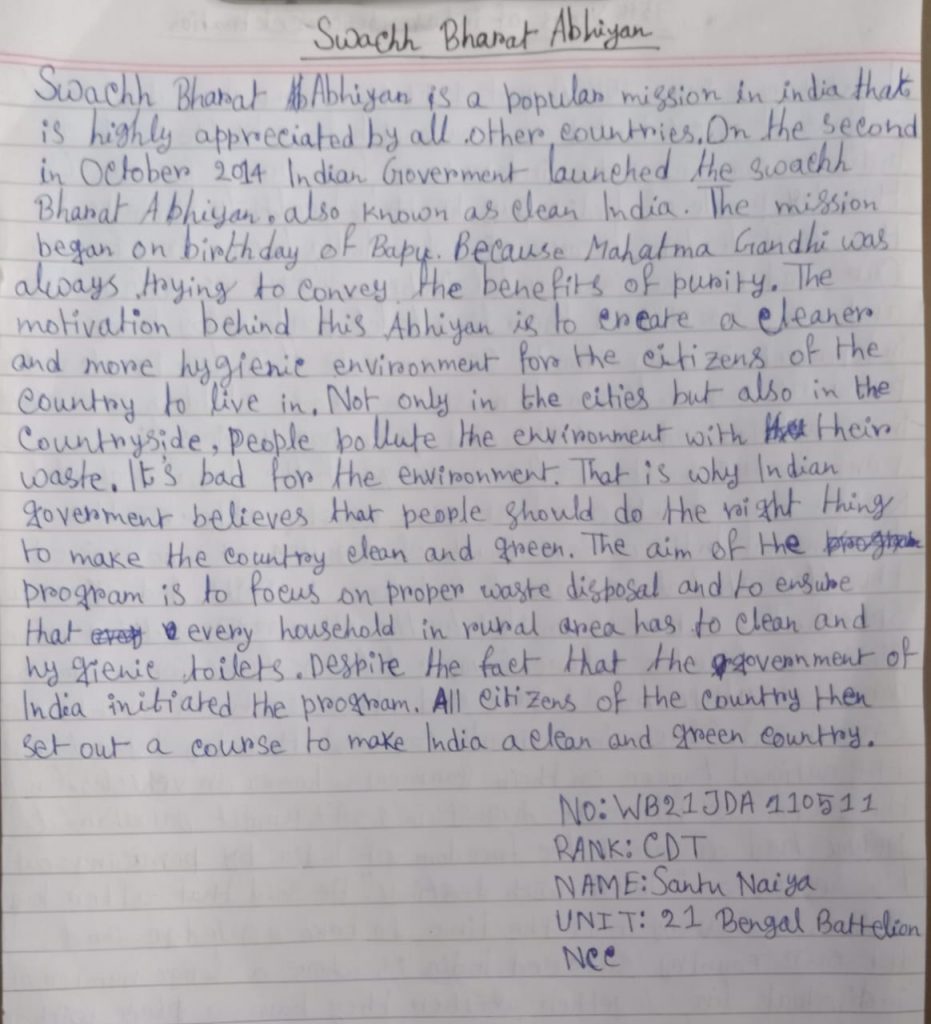 Swachh Bharat Abhiyan
Swachh Bharat Abhiyan is a popular mission in india that
is highly appreciated by all other countries. On the second
in October 2014 Indian Goverment launched the swachh
Bharat Abhiyan, also known as clean India. The mission
began on birthday of Bapu. Because Mahatma Gandhi was
always trying to convey the benefits of purity. The
motivation behind this Abhiyan is to create a cleaner
and more hygienic environment for the citizens of the
country to live in. Not only in the cities but also in the
Countryside, people pollute the environment with their
waste. It's bad for the environment. That is why Indian
goverment believes that people should do the right thing
to make the country clean and green. The aim of the
program is to focus on proper waste disposal and to ensure
that every household in rural area has to clean and
hygienic toilets. Despite the fact that the government of
India initiated the program. All citizens of the country then
set out a course to make India a clean and green country.
NO: WB21JDA 110511
RANK: CDT
NAME: Santu Naiya
UNIT: 21 Bengal Battelion
Ncc